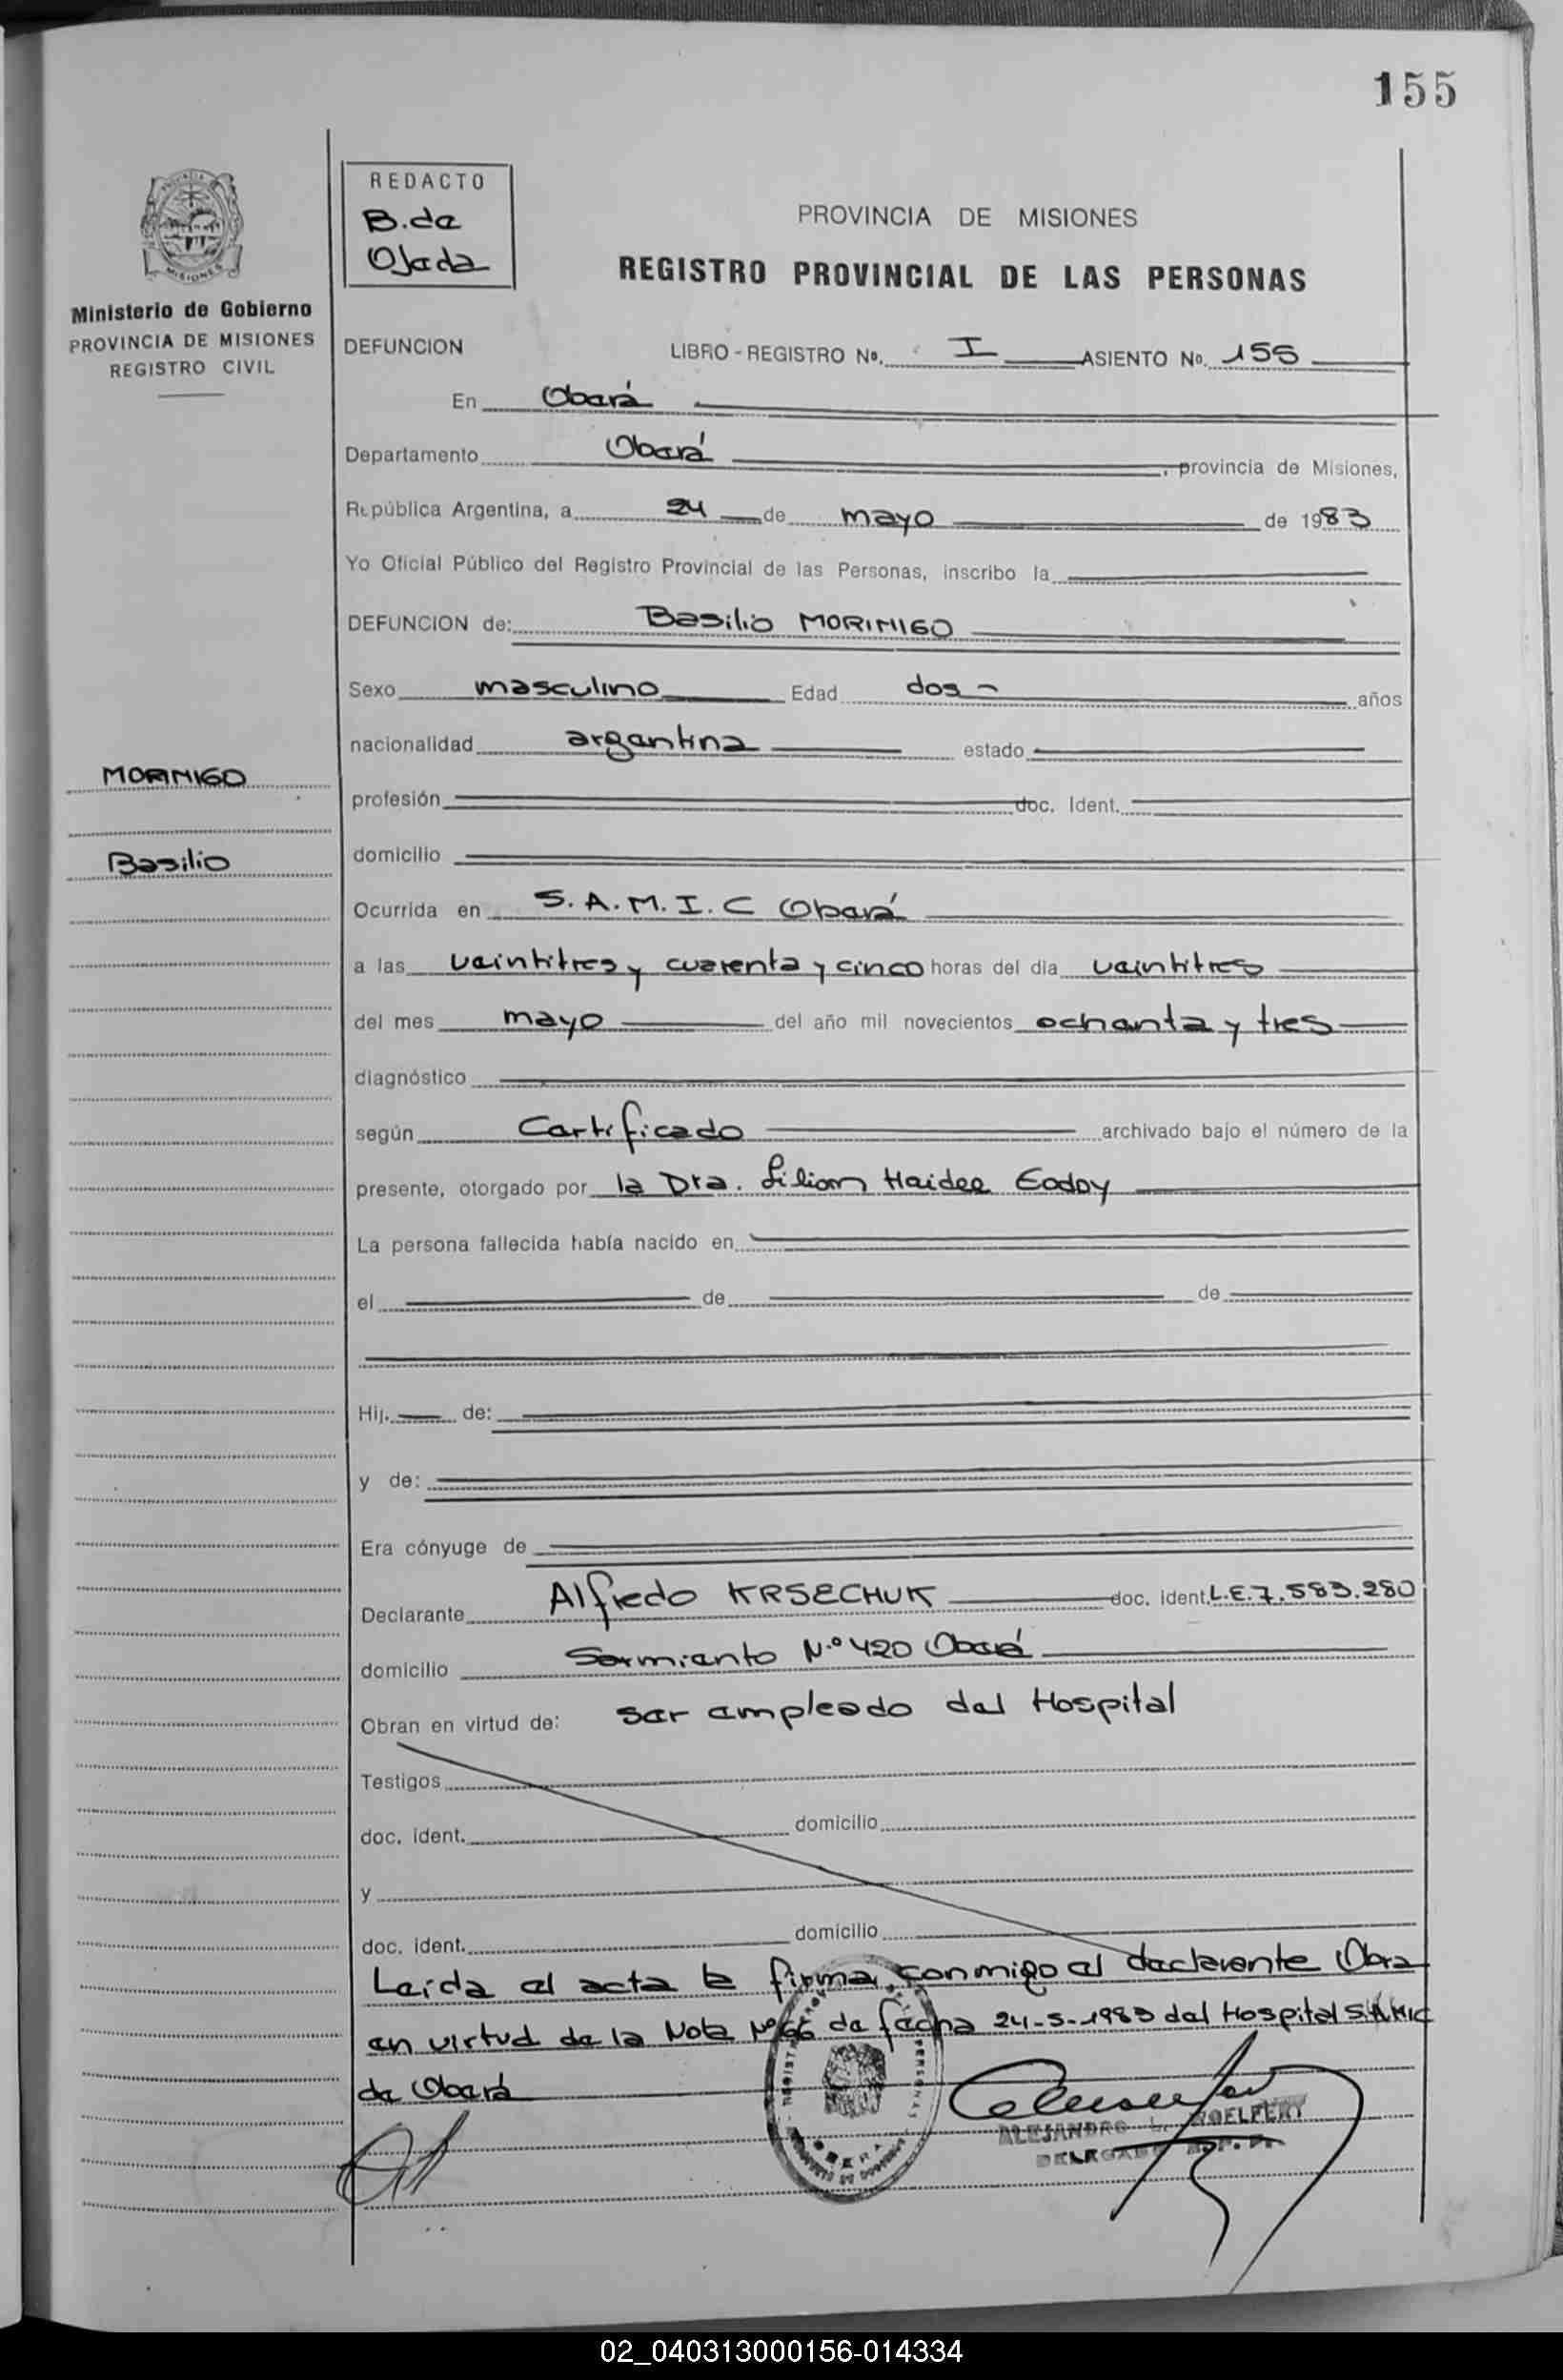 155
REDACTO
B. de
Ojeda
PROVINCIA DE MISIONES
REGISTRO PROVINCIAL DE LAS PERSONAS
MISIONES
Ministerio de Gobierno
PROVINCIA DE MISIONES
REGISTRO CIVIL
DEFUNCION LIBRO - REGISTRO Nº. I ASIENTO Nº. 155
En Oberá
Departamento Oberá, provincia de Misiones,
República Argentina, a 24 de mayo de 1983
Yo Oficial Público del Registro Provincial de las Personas, inscribo la
DEFUNCION de: Basilio MORINIGO
Sexo masculino Edad dos - años
nacionalidad argentina estado
MORINIGO
profesión doc. Ident.
Basilio
domicilio
Ocurrida en S.A.M.I.C Oberá
a las veintitres y cuarenta y cinco horas del dia veintitres
del mes mayo del año mil novecientos ochenta y tres
diagnóstico
según Certificado archivado bajo el número de la
presente, otorgado por la Dra. Lilian Haidee Godoy
La persona fallecida había nacido en
el de de
Hij. de:
y de:
Era cónyuge de
Declarante Alfredo KRSECHUK doc. ident. L.E. 7.583.280
domicilio Sarmiento N.º 420 Oberá
Obran en virtud de: ser empleado del Hospital
Testigos
doc. ident. domicilio
y
doc. ident. domicilio
Leída el acta la firma conmigo el declarante Obra
en virtud de la Nota Nº 66 de fecha 24-5-1983 del Hospital SAMIC
de Oberá
ALEJANDRO L.
DELEGADO R.P.P.
02_040313000156-014334